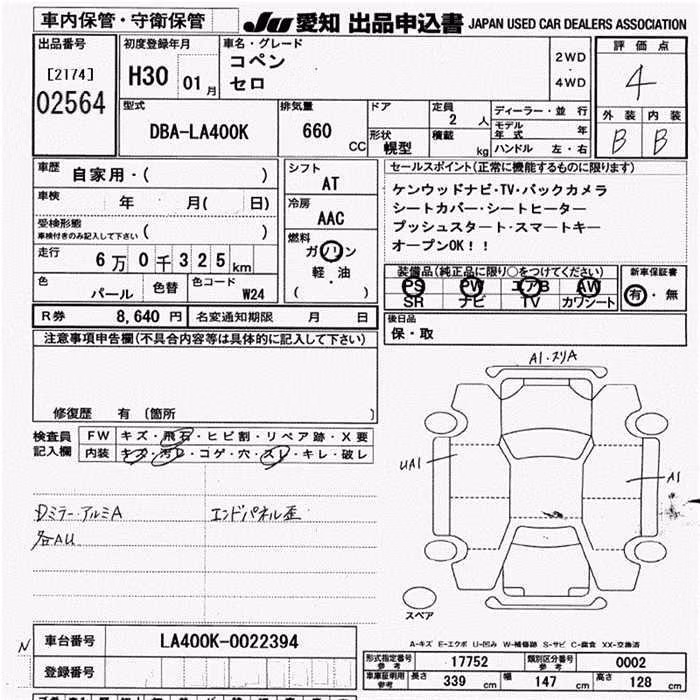 車内保管・守衛保管
JU 愛知 出品申込書 JAPAN USED CAR DEALERS ASSOCIATION
出品番号
[2174]
02564
初度登録年月
H30 01 月
車名・グレード
コペン
セロ
2WD
・
4WD
評価点
4
外装 内装
B B
型式
DBA-LA400K
排気量
660 CC
ドア
形状
幌型
定員
2 人
積載 kg
ディーラー・並行
モデル年式 年
ハンドル 左・右
車歴
自家用・( )
車検 年 月( 日)
受検形態
車検付きのみ記入して下さい ( )
走行
6万0千325km
色
パール
色替
色コード
W24
シフト
AT
冷房
AAC
燃料
ガソリン
軽・油
( )
セールスポイント(正常に機能するものに限ります)
ケンウッドナビ・TV・バックカメラ
シートカバー・シートヒーター
プッシュスタート・スマートキー
オープンOK!!
装備品(純正品に限り○をつけてください)
PS PW エアB AW
SR ナビ TV カワシート
新車保証書
有・無
R券 8,640 円 名変通知期限 月 日
後日品
保・取
注意事項申告欄(不具合内容等は具体的に記入して下さい)
修復歴 有 〔箇所 〕
検査員記入欄
FW キズ・飛石・ヒビ割・リペア跡・X要
内装 キズ・汚レ・コゲ・穴・スレ・キレ・破レ
Dミラー・アルミA
各AU
エンドパネル歪
A1・スリA
UA1
A1
スペア
A-キズ E-エクボ U-凹み W-補修跡 S-サビ C-腐食 XX-交換済
N
車台番号 LA400K-0022394
登録番号
形式指定番号 参考 17752 類別区分番号 参考 0002
車庫証明用 参考 長さ 339 cm 幅 147 cm 高さ 128 cm